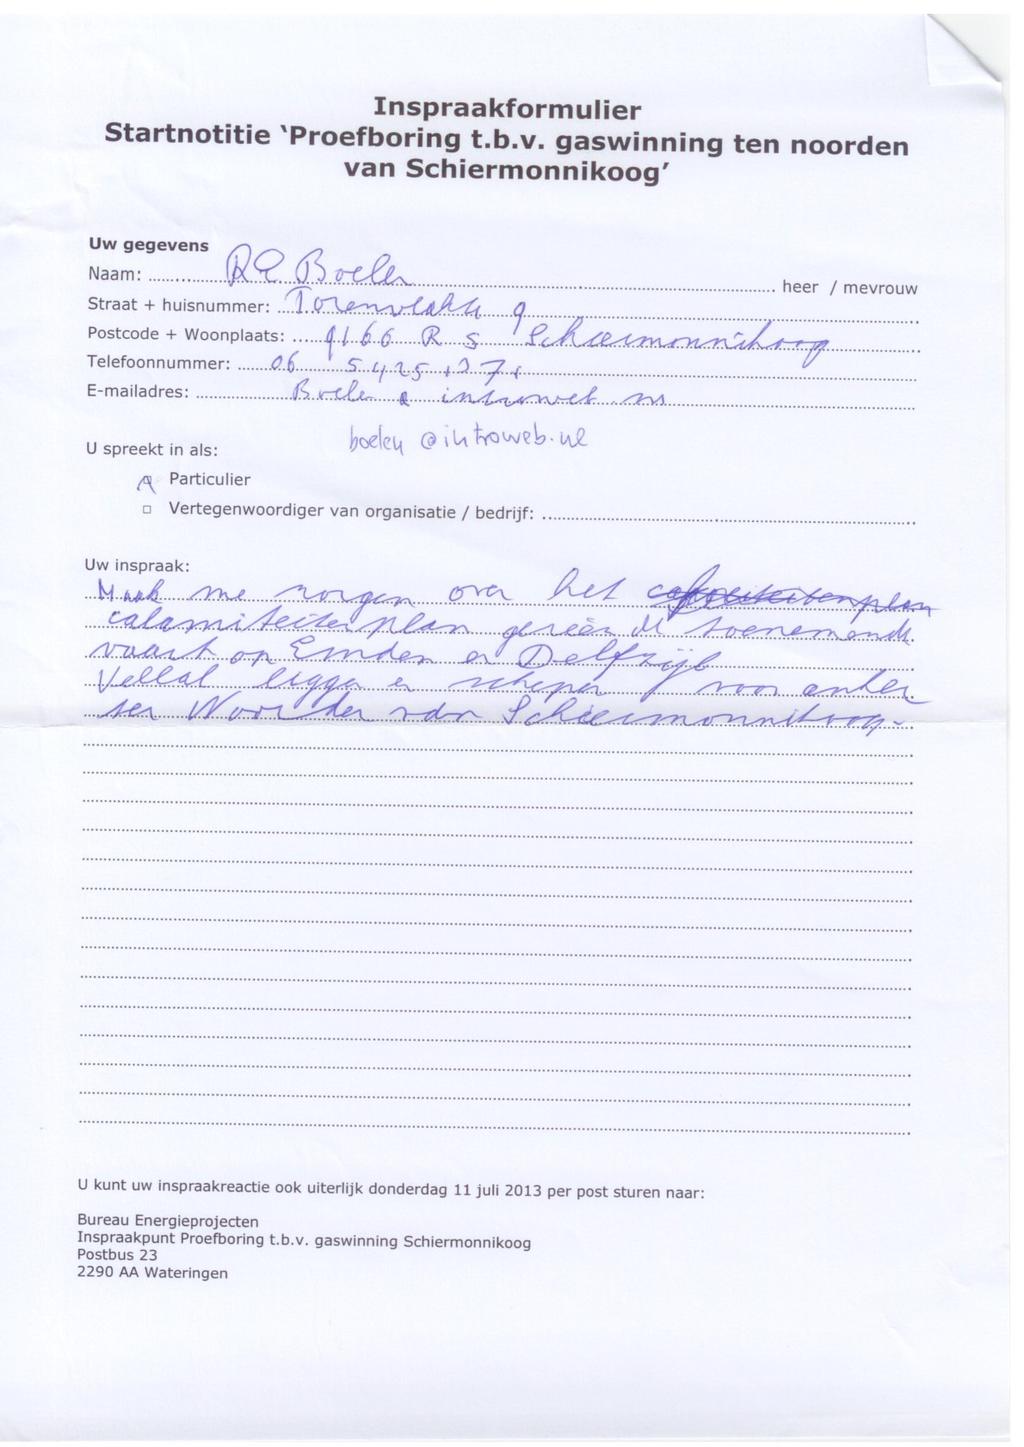 Inspraakformulier
Startnotitie ‘Proefboring t.b.v. gaswinning ten noorden
van Schiermonnikoog’
Uw gegevens
Naam: RE Boelen heer / mevrouw
Straat + huisnummer: Torenvlakte 9
Postcode + Woonplaats: 9166 RS Schiermonnikoog
Telefoonnummer: 06
E-mailadres: Boelen
boelen @introweb.nl
U spreekt in als:
Particulier
□ Vertegenwoordiger van organisatie / bedrijf:
Uw inspraak:
Maak me zorgen over het
calamiteitenplan gezien de toenemende
vaart op Emden en Delfzijl
Veelal liggen er schepen voor anker
ten Noorden van Schiermonnikoog.
U kunt uw inspraakreactie ook uiterlijk donderdag 11 juli 2013 per post sturen naar:
Bureau Energieprojecten
Inspraakpunt Proefboring t.b.v. gaswinning Schiermonnikoog
Postbus 23
2290 AA Wateringen